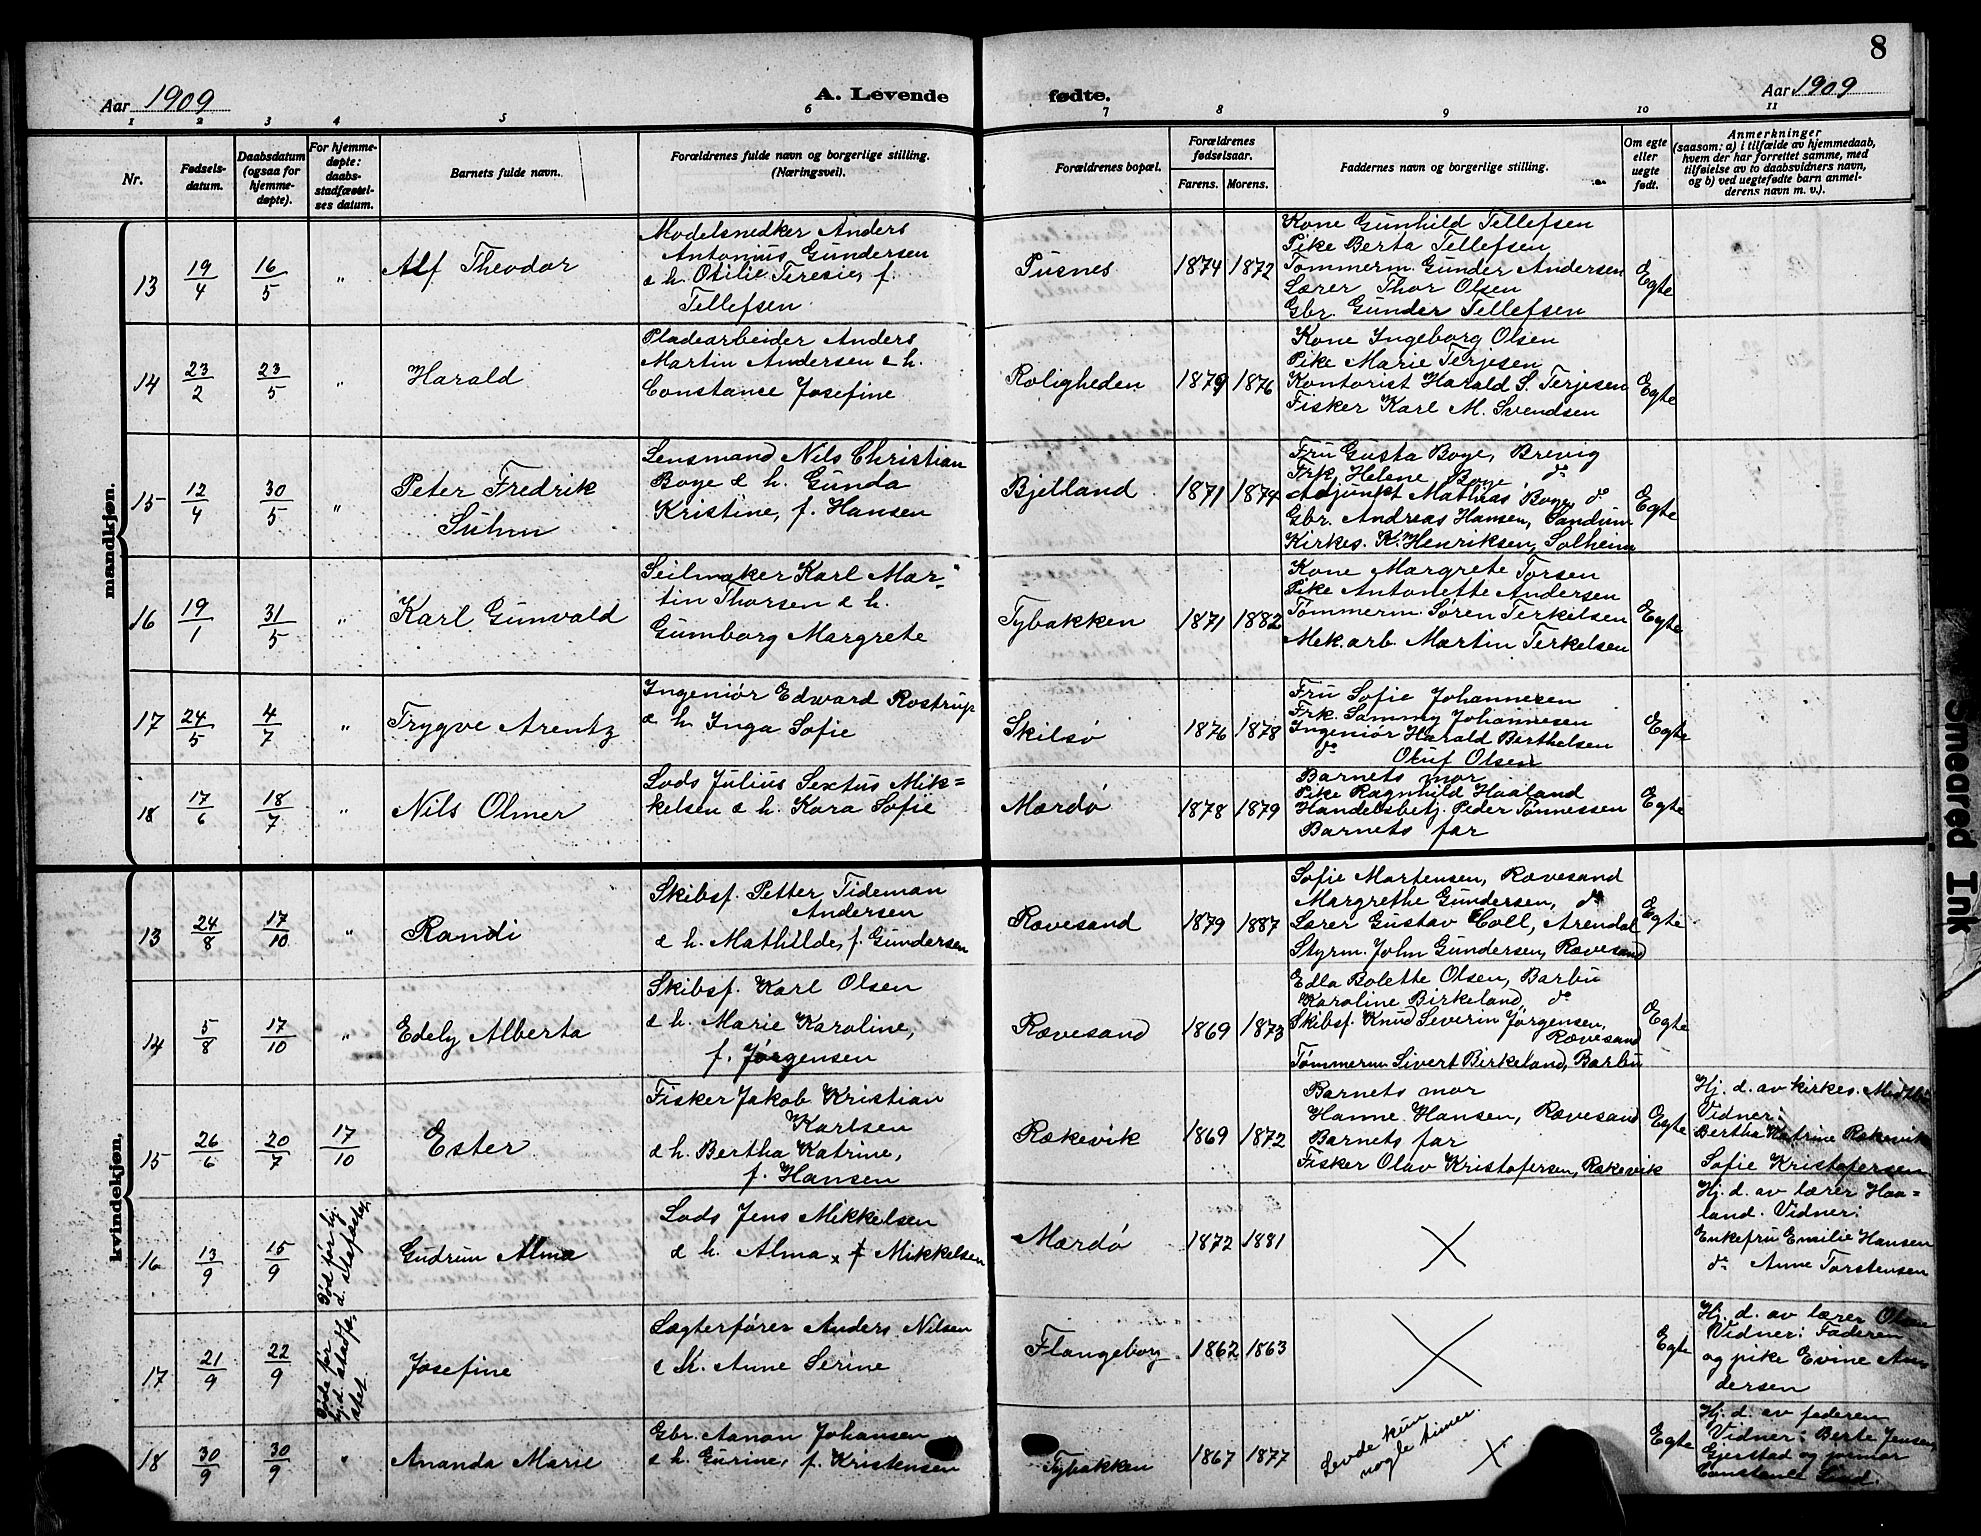 8
Aar 1909
A. Levende fødte.
Aar 1909
1 2 3 4 5 6 7 8 9 10 11
Nr.
Fødsels-
datum.
Daabsdatum
(ogsaa for
hjemme-
døpte).
For hjemme-
døpte:
daabs-
stadfæstel-
ses datum.
Barnets fulde navn.
Forældrenes fulde navn og borgerlige stilling.
(Næringsvei).
Forældrenes bopæl.
Forældrenes
fødselsaar.
Farens. Morens.
Faddernes navn og borgerlige stilling.
Om egte
eller
uegte
født.
Anmerkninger
(saasom: a) i tilfælde av hjemmedaab,
hvem der har forrettet samme, med
tilføielse av to daabsvidners navn,
og b) ved uegtefødte barn anmel-
derens navn m. v.).
mandkjøn.
13
19/4
16/5
"
Alf Theodor
Modelsnedker Anders
Antonius Gundersen
& h. Otilie Teresie, f.
Tellefsen
Pusnes
1874
1872
Kone Gunhild Tellefsen
Pike Berta Tellefsen
Tømmerm. Gunder Andersen
Lærer Thor Olsen
Gbr. Gunder Tellefsen
Egte
14
23/2
23/5
"
Harald
Pladearbeider Anders
Martin Andersen & h.
Constance Josefine
Roligheden
1879
1876
Kone Ingeborg Olsen
Pike Marie Terjesen
Kontorist Harald S. Terjesen
Fisker Karl M. Svendsen
Egte
15
12/4
30/5
"
Peter Fredrik
Suhm
Lensmand Nils Christian
Boye & h. Gunda
Kristine, f. Hansen
Bjelland
1871
1874
Fru Gusta Boye, Brevig
Frk. Helene Boye do
Adjunkt Mathias Boye, do
Gbr. Andreas Hansen, Sandum
Kirkes. K. Henriksen, Solheim
Egte
16
19/1
31/5
"
Karl Gunvald
Seilmaker Karl Mar-
tin Thorsen & h.
Gumborg Margrete
Tybakken
1871
1882
Kone Margrete Torsen
Pike Antonette Andersen
Tømmerm. Søren Terkelsen
Mek. arb. Martin Terkelsen
Egte
17
24/5
4/7
"
Trygve Arentz
Ingeniør Edward Rostrup
& h. Inga Sofie
Skilsø
1876
1878
Fru Sofie Johannesen
Frk. Sammy Johannesen
Ingeniør Harald Berthelsen
do Oluf Olsen
Egte
18
17/6
18/7
"
Nils Olmer
Lods Julius Sextus Mik=
kelsen & h. Kara Sofie
Mærdø
1878
1879
Barnets mor
Pike Ragnhild Haaland
Handelsbetj. Peder Tønnessen
Barnets far
Egte
kvindekjøn.
13
24/8
17/10
"
Randi
Skibsf. Petter Tideman
Andersen
& h. Mathilde, f. Gundersen
Rævesand
1879
1887
Sofie Martensen, Rævesand
Margrethe Gundersen, do
Lærer Gustav Coll, Arendal
Styrm. John Gundersen, Rævesand
Egte
14
5/8
17/10
"
Edely Alberta
Skibsf. Karl Olsen
& h. Marie Karoline,
f. Jørgensen
Rævesand
1869
1873
Edla Bolette Olsen, Barbu
Karoline Birkeland, do
Skibsf. Knud Severin Jørgensen,
Rævesand
Tømmerm Sivert Birkeland, Barbu
Egte
15
26/6
20/7
17/10
Ester
Fisker Jakob Kristian
Karlsen
& h. Bertha Katrine,
f. Hansen
Rækevik
1869
1872
Barnets mor
Hanne Hansen, Rævesand
Barnets far
Fisker Olav Kristofersen, Rækevik
Egte
Hj. d. av kirkes.
Vidner:
Bertha Katrine Rækevik
Sofie Kristofersen
16
13/9
15/9
Død før hj.
d. stadfæstet.
Gudrun Alma
Lods Jens Mikkelsen
& h. Alma x f Mikkelsen
Mærdø
1872
1881
Hj. d. av lærer Haa=
land. Vidner:
Enkefru Emilie Hansen
do Anne Torstensen
17
21/9
22/9
Døde før
hj. d. stadfæ-
stet
Josefine
Lægterfører Anders Nilsen
& h. Anne Serine
Flangeborg
1862
1863
Egte
Hj. d. av lærer Olsen
Vidner: Faderen
og pike Evine An-
dersen
18
30/9
30/9
"
Ananda Marie
Gbr. Aanon Johansen
& h. Gurine, f. Kristensen
Tybakken
1867
1877
Levde kun
nogle timer.
Egte
Hj. d. av faderen
Vidner: Berte Jensen,
Gjerstad og jormor
Constance Lind.
Smeared Ink